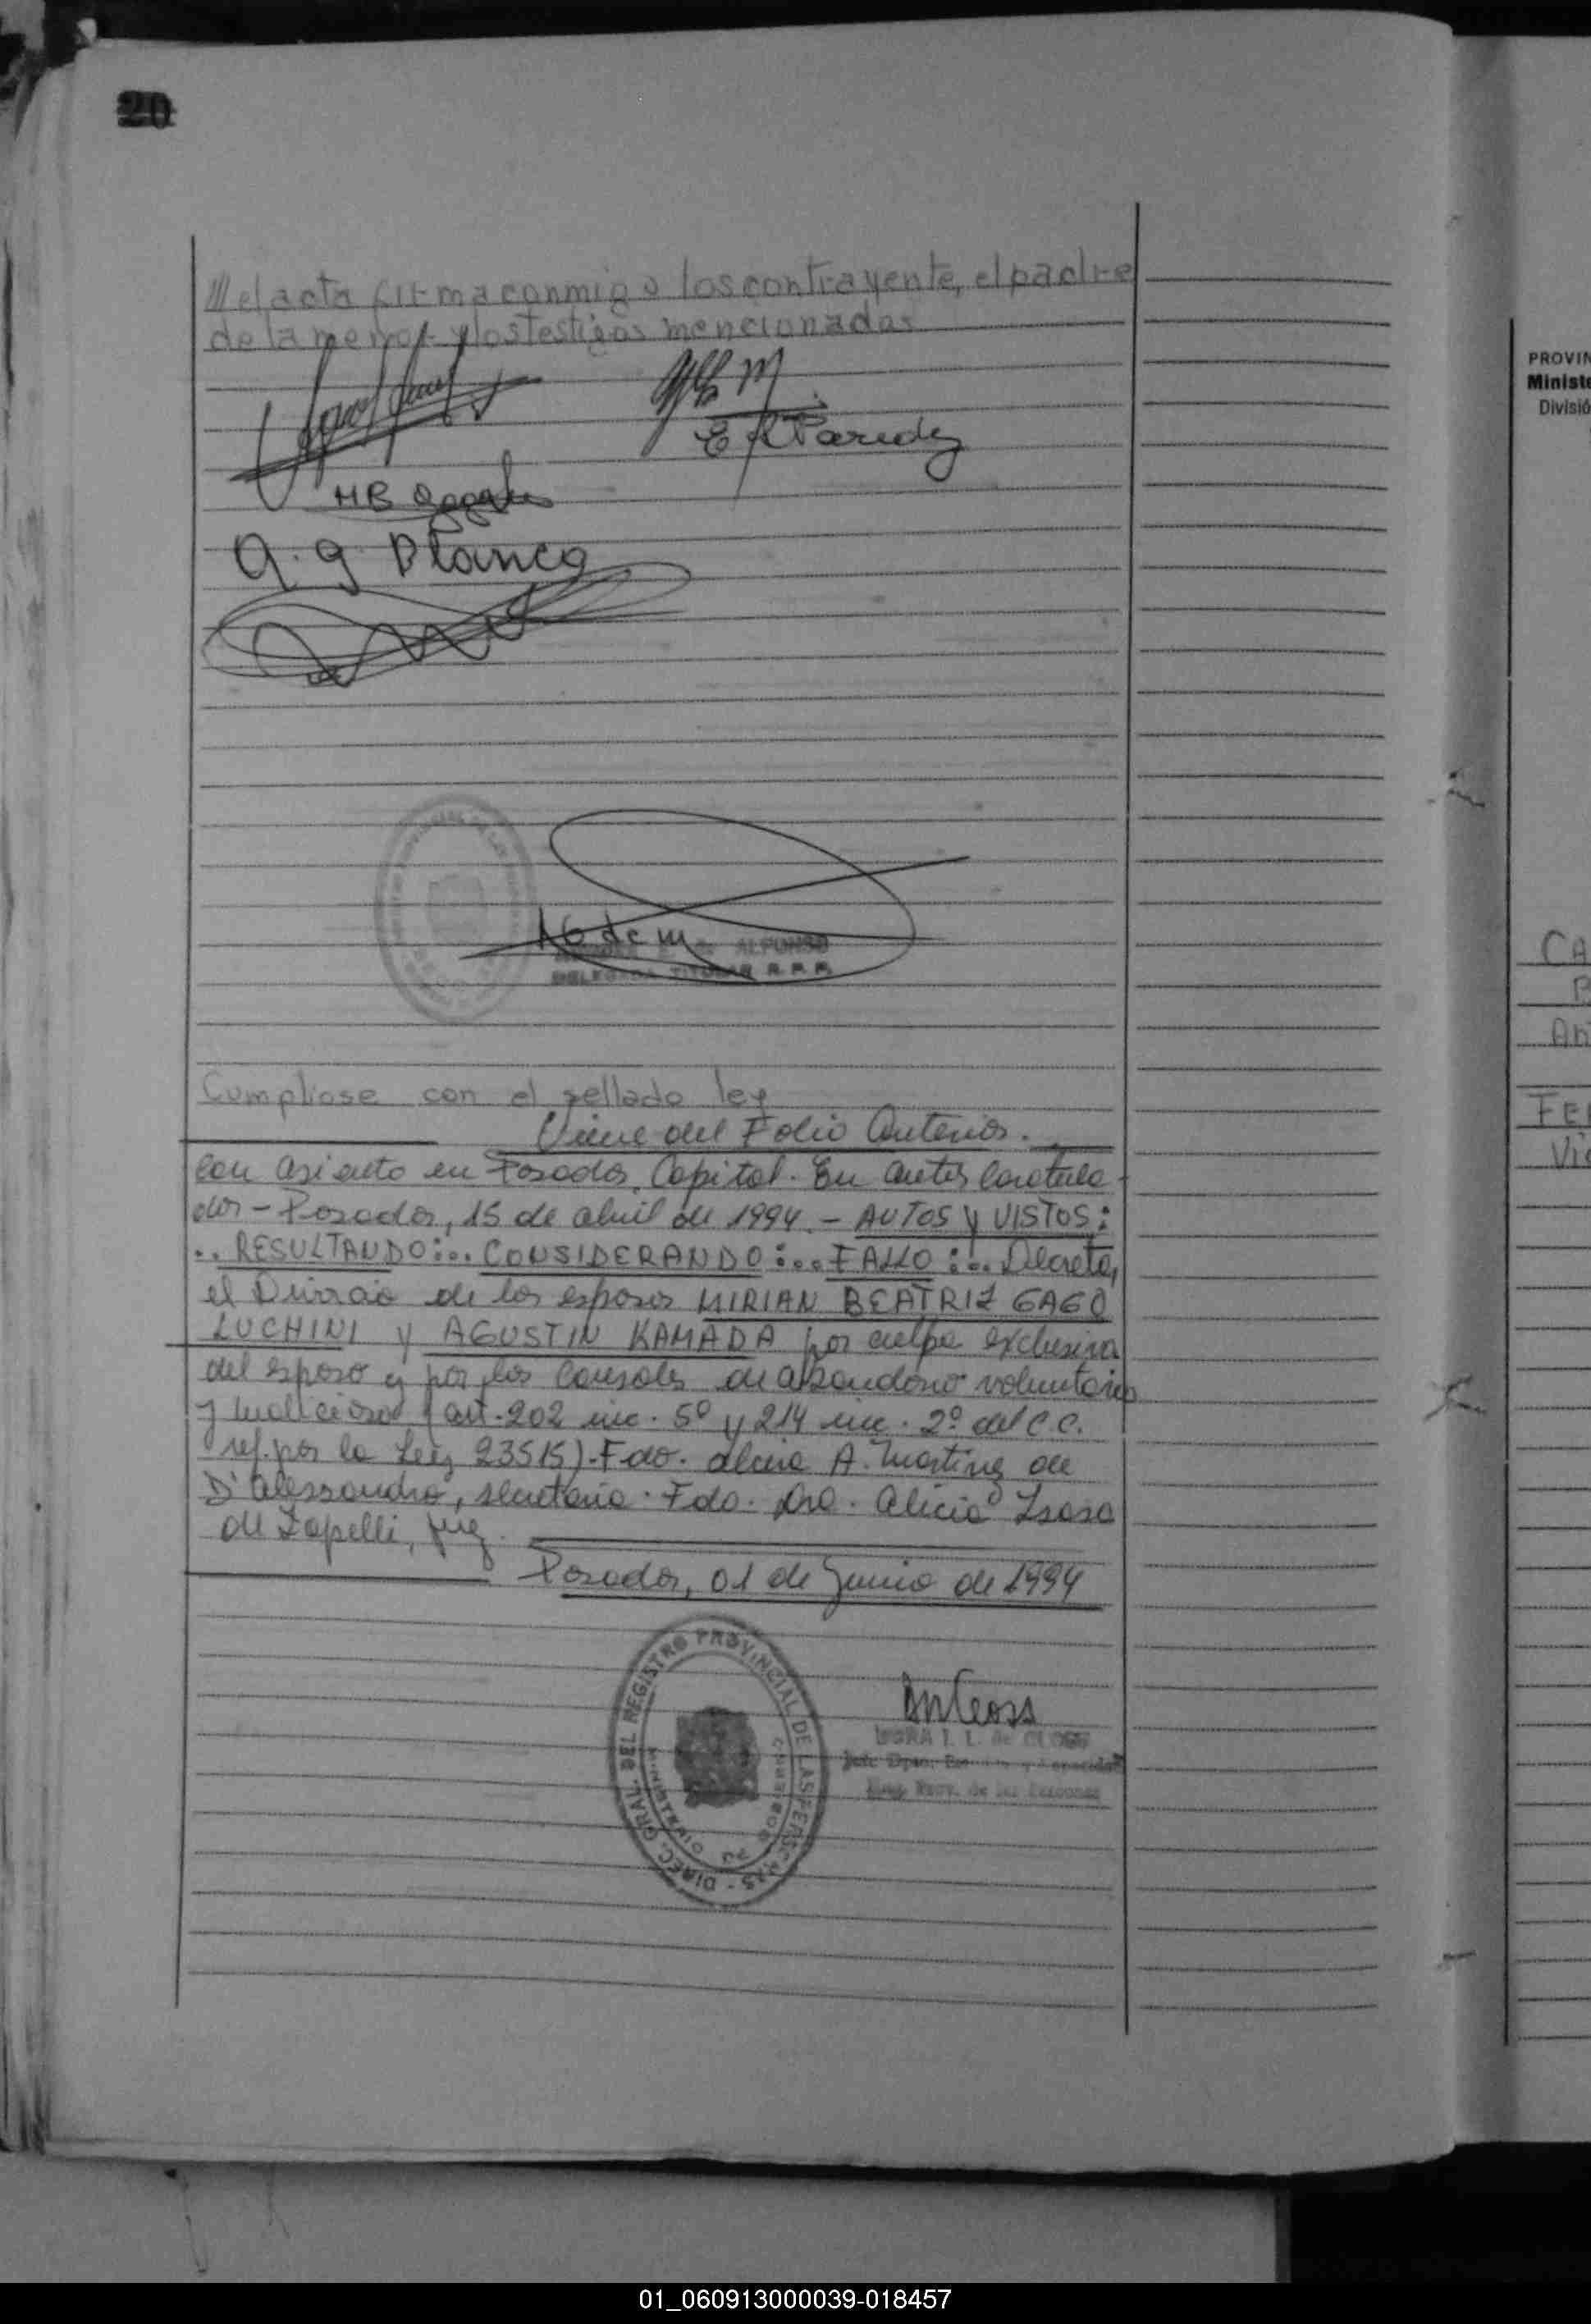 20
/// el acta firma conmigo los contrayente, el padre
de la menor y los testigos mencionados
E R Paredez
MB Gago
A. G Blanco
ALFONSO
DELEGADA TITULAR R. P. P.
Cumpliose con el sellado ley
Viene del Folio Anterior.
con asiento en Posadas, Capital. En autos caratula-
dos - Posadas, 15 de abril de 1994. - AUTOS Y VISTOS:
.. RESULTANDO:... CONSIDERANDO:... FALLO:... Decreta,
el Divorcio de los esposos MIRIAN BEATRIZ GAGO
LUCHINI y AGUSTIN KAMADA por culpa exclusiva
del esposo y por las causales de abandono voluntario
y malicioso (art. 202 inc. 5º y 214 inc. 2º del C.C.
ref. por la Ley 23515). Fdo. A. Martinez de
D'Alessandro, secretaria. Fdo. Dra. Alicia
de Zapelli, Juez.
Posadas, 01 de Junio de 1994
DIREC. GRAL. DEL REGISTRO PROVINCIAL DE LAS PERSONAS
MINISTERIO DE GOBIERNO
Reg. Prov. de las Personas
PROVIN
Ministe
Divisió
CA
An
FE
Vi
01_060913000039-018457